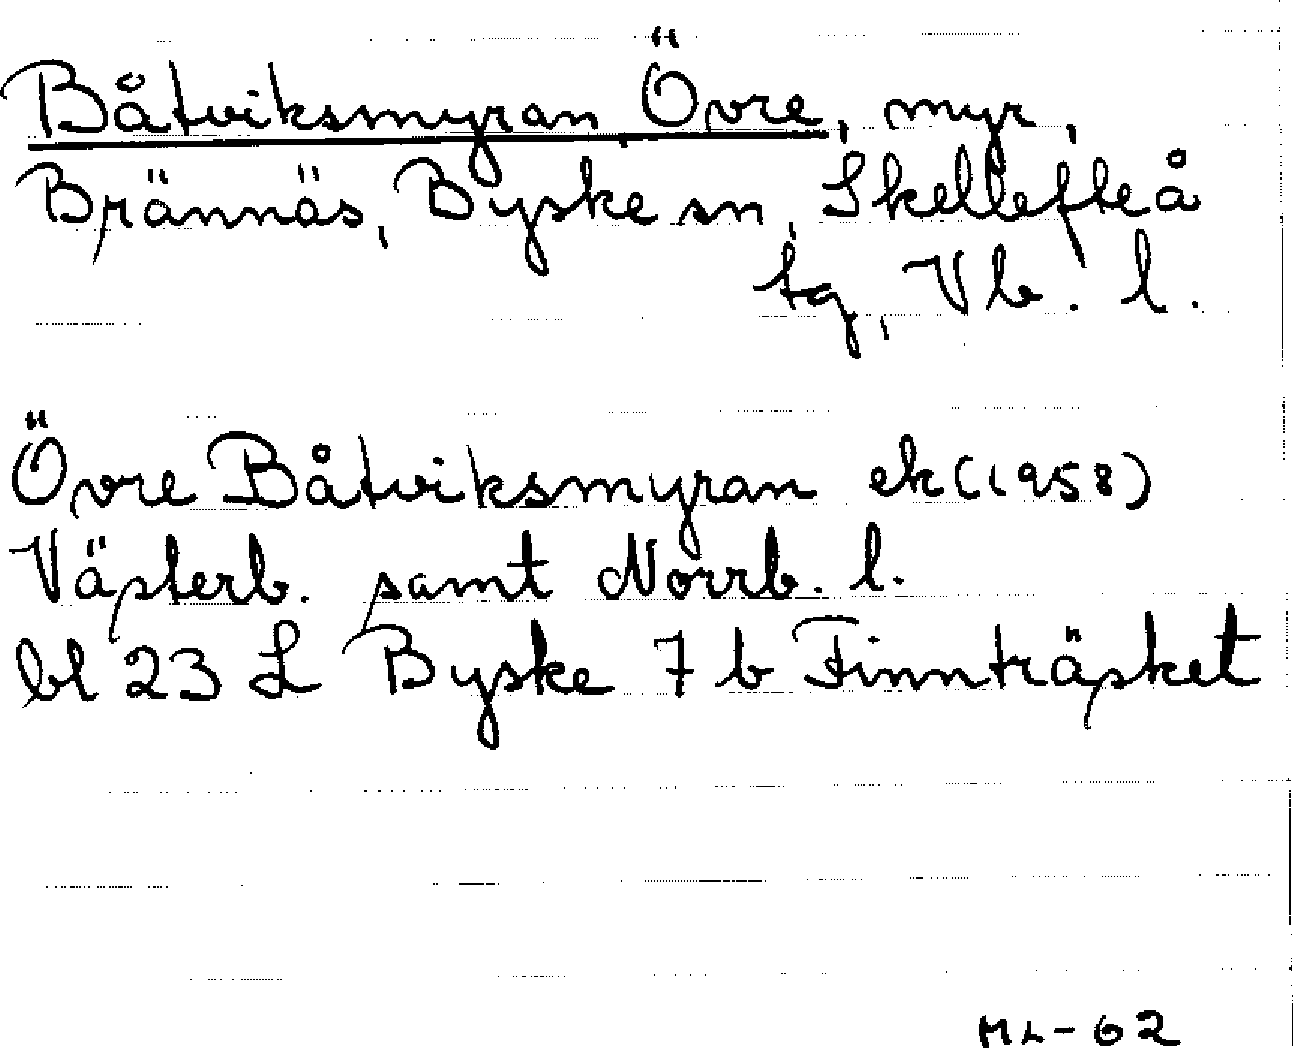 Båtviksmyran, Övre, myr,
Brännäs, Byske sn, Skellefteå
tg, Vb. l.
Övre Båtviksmyran ek (1958)
Västerb. samt Norrb. l.
bl 23 L Byske 7 b Finnträsket
ML-62